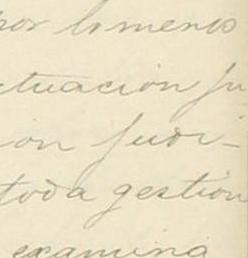 por lo menos
ctuacion ju
on juri-
toda gestion
examina